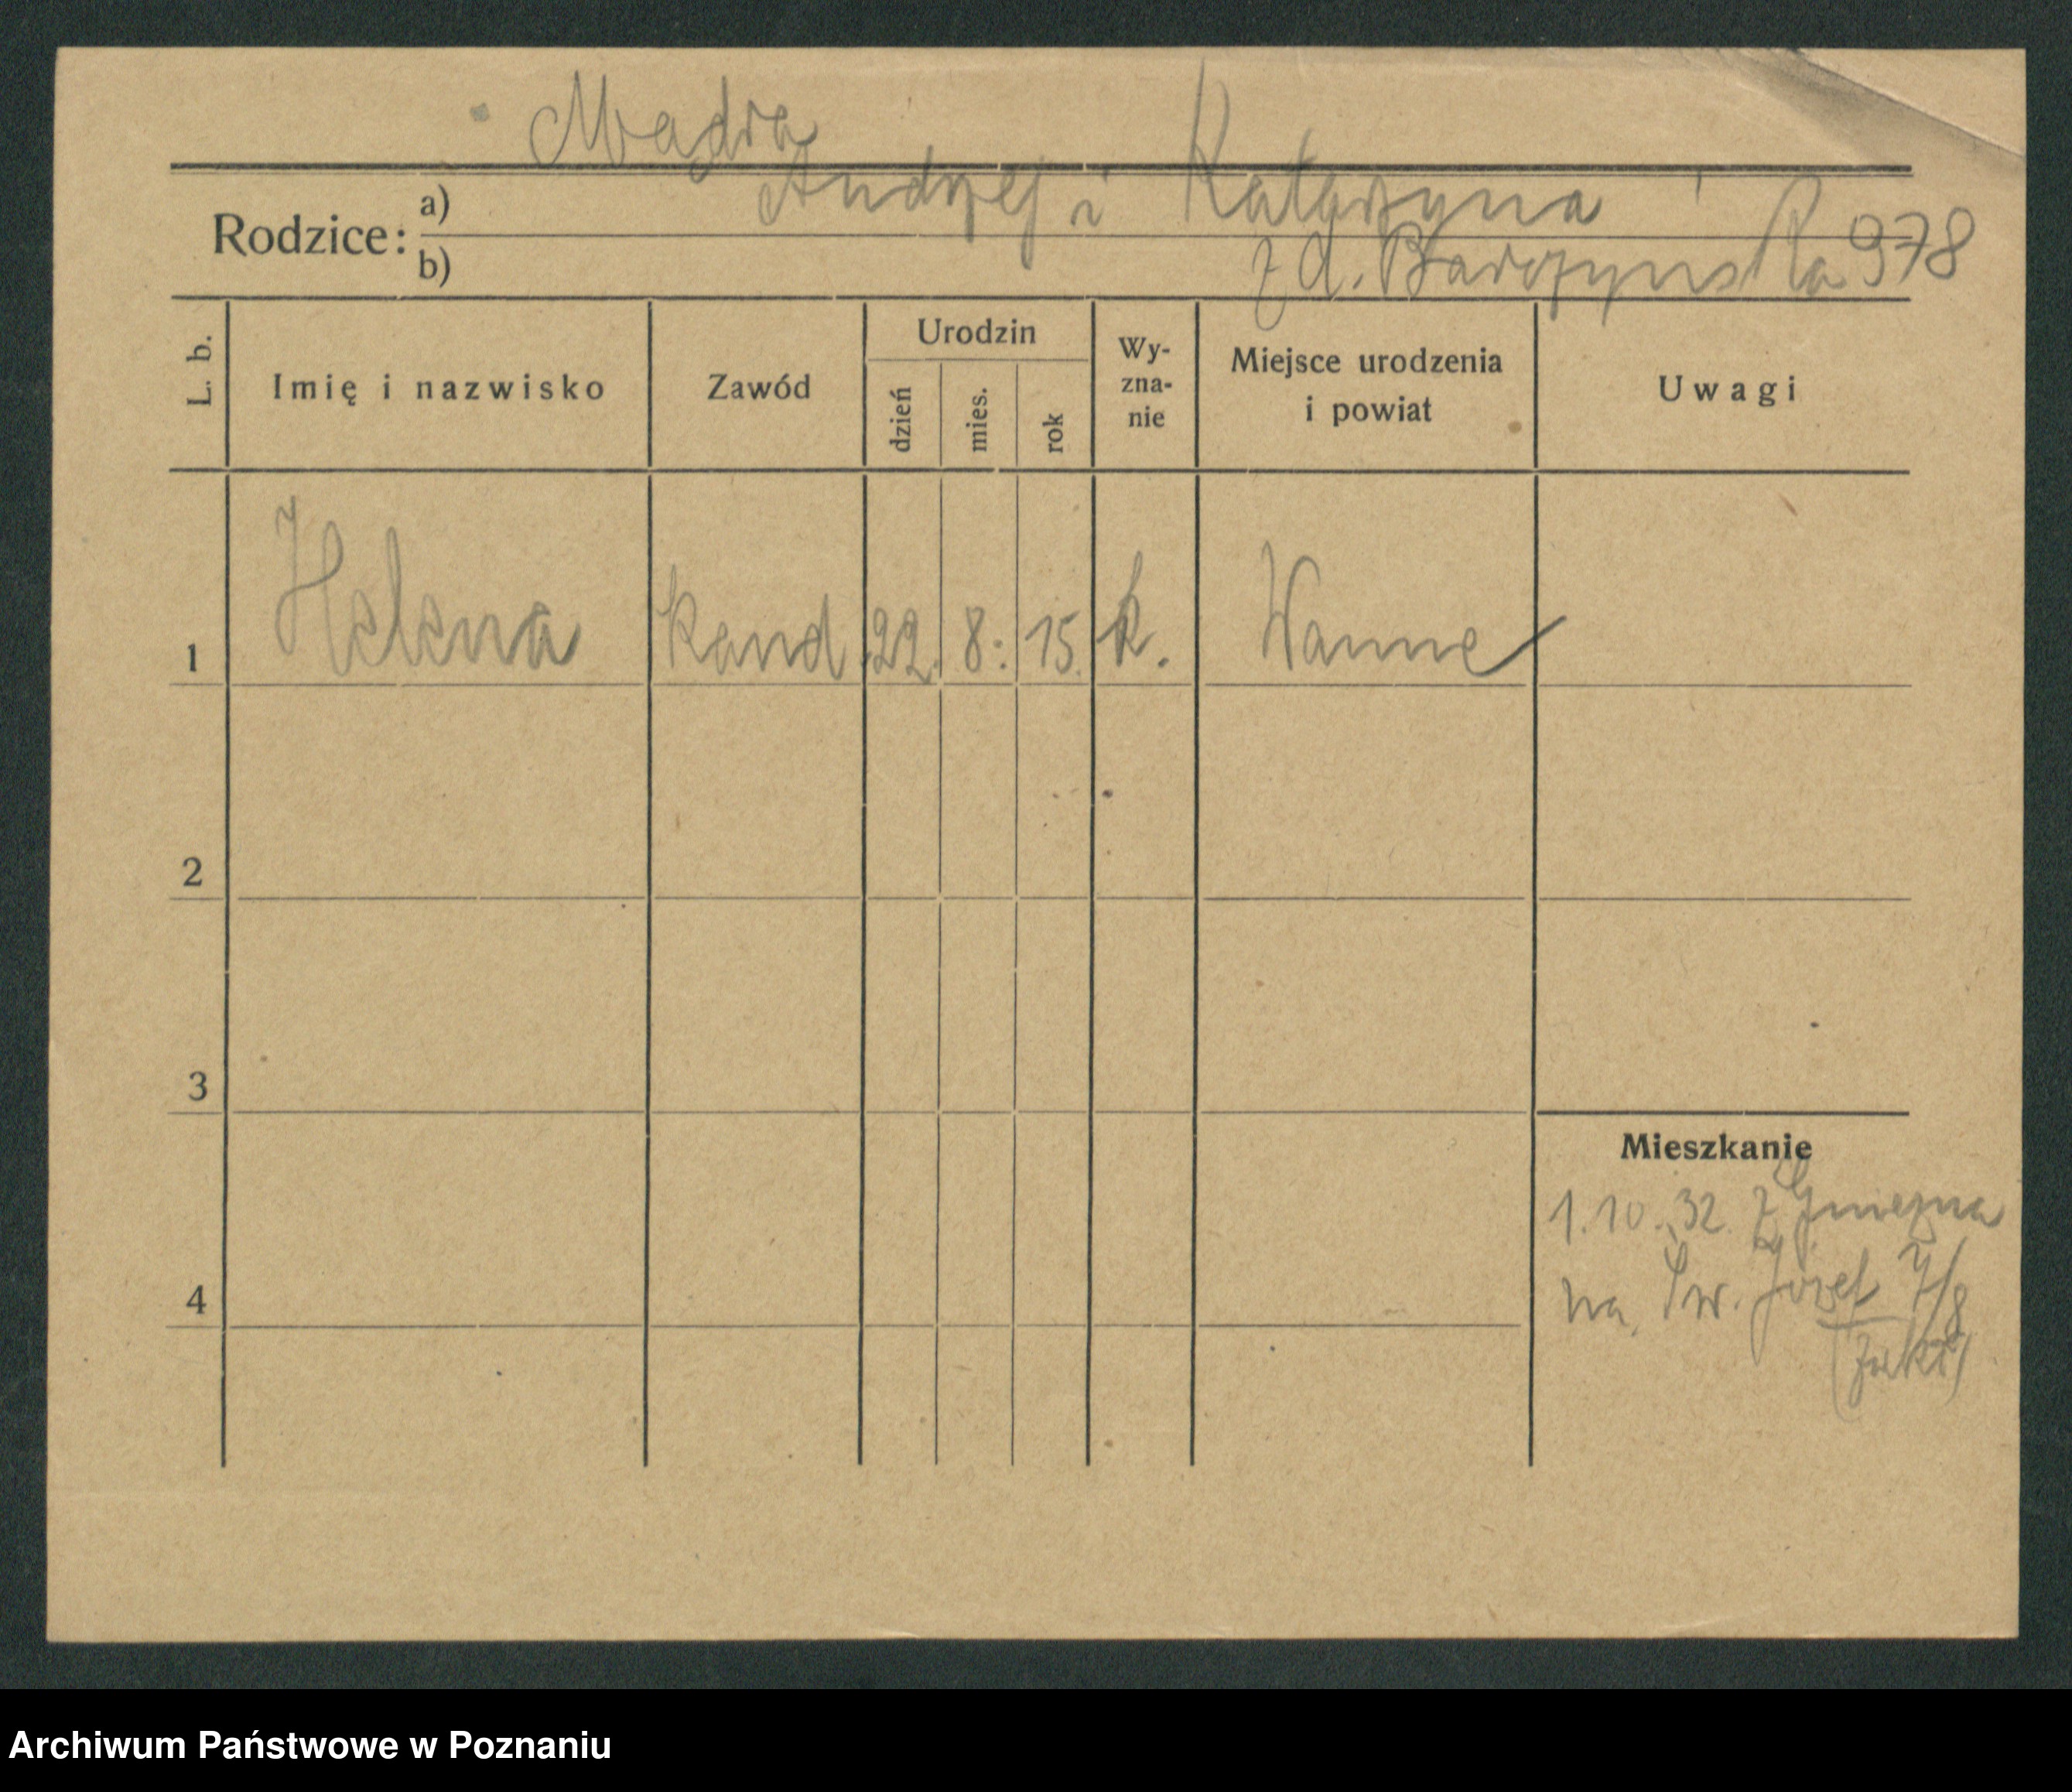 Mądra
Andrzej i Katarzyna
Rodzice: a)
b) z d. Barczyńska 978
L. b.
Imię i nazwisko
Zawód
Urodzin
dzień
mies.
rok
Wy-
zna-
nie
Miejsce urodzenia
i powiat
Uwagi
1 Helena kand 22. 8. 15. k. Wanne
2
3
4
Mieszkanie
1.10.32. z Gniezna
na Św. Józef 7/8
Archiwum Państwowe w Poznaniu